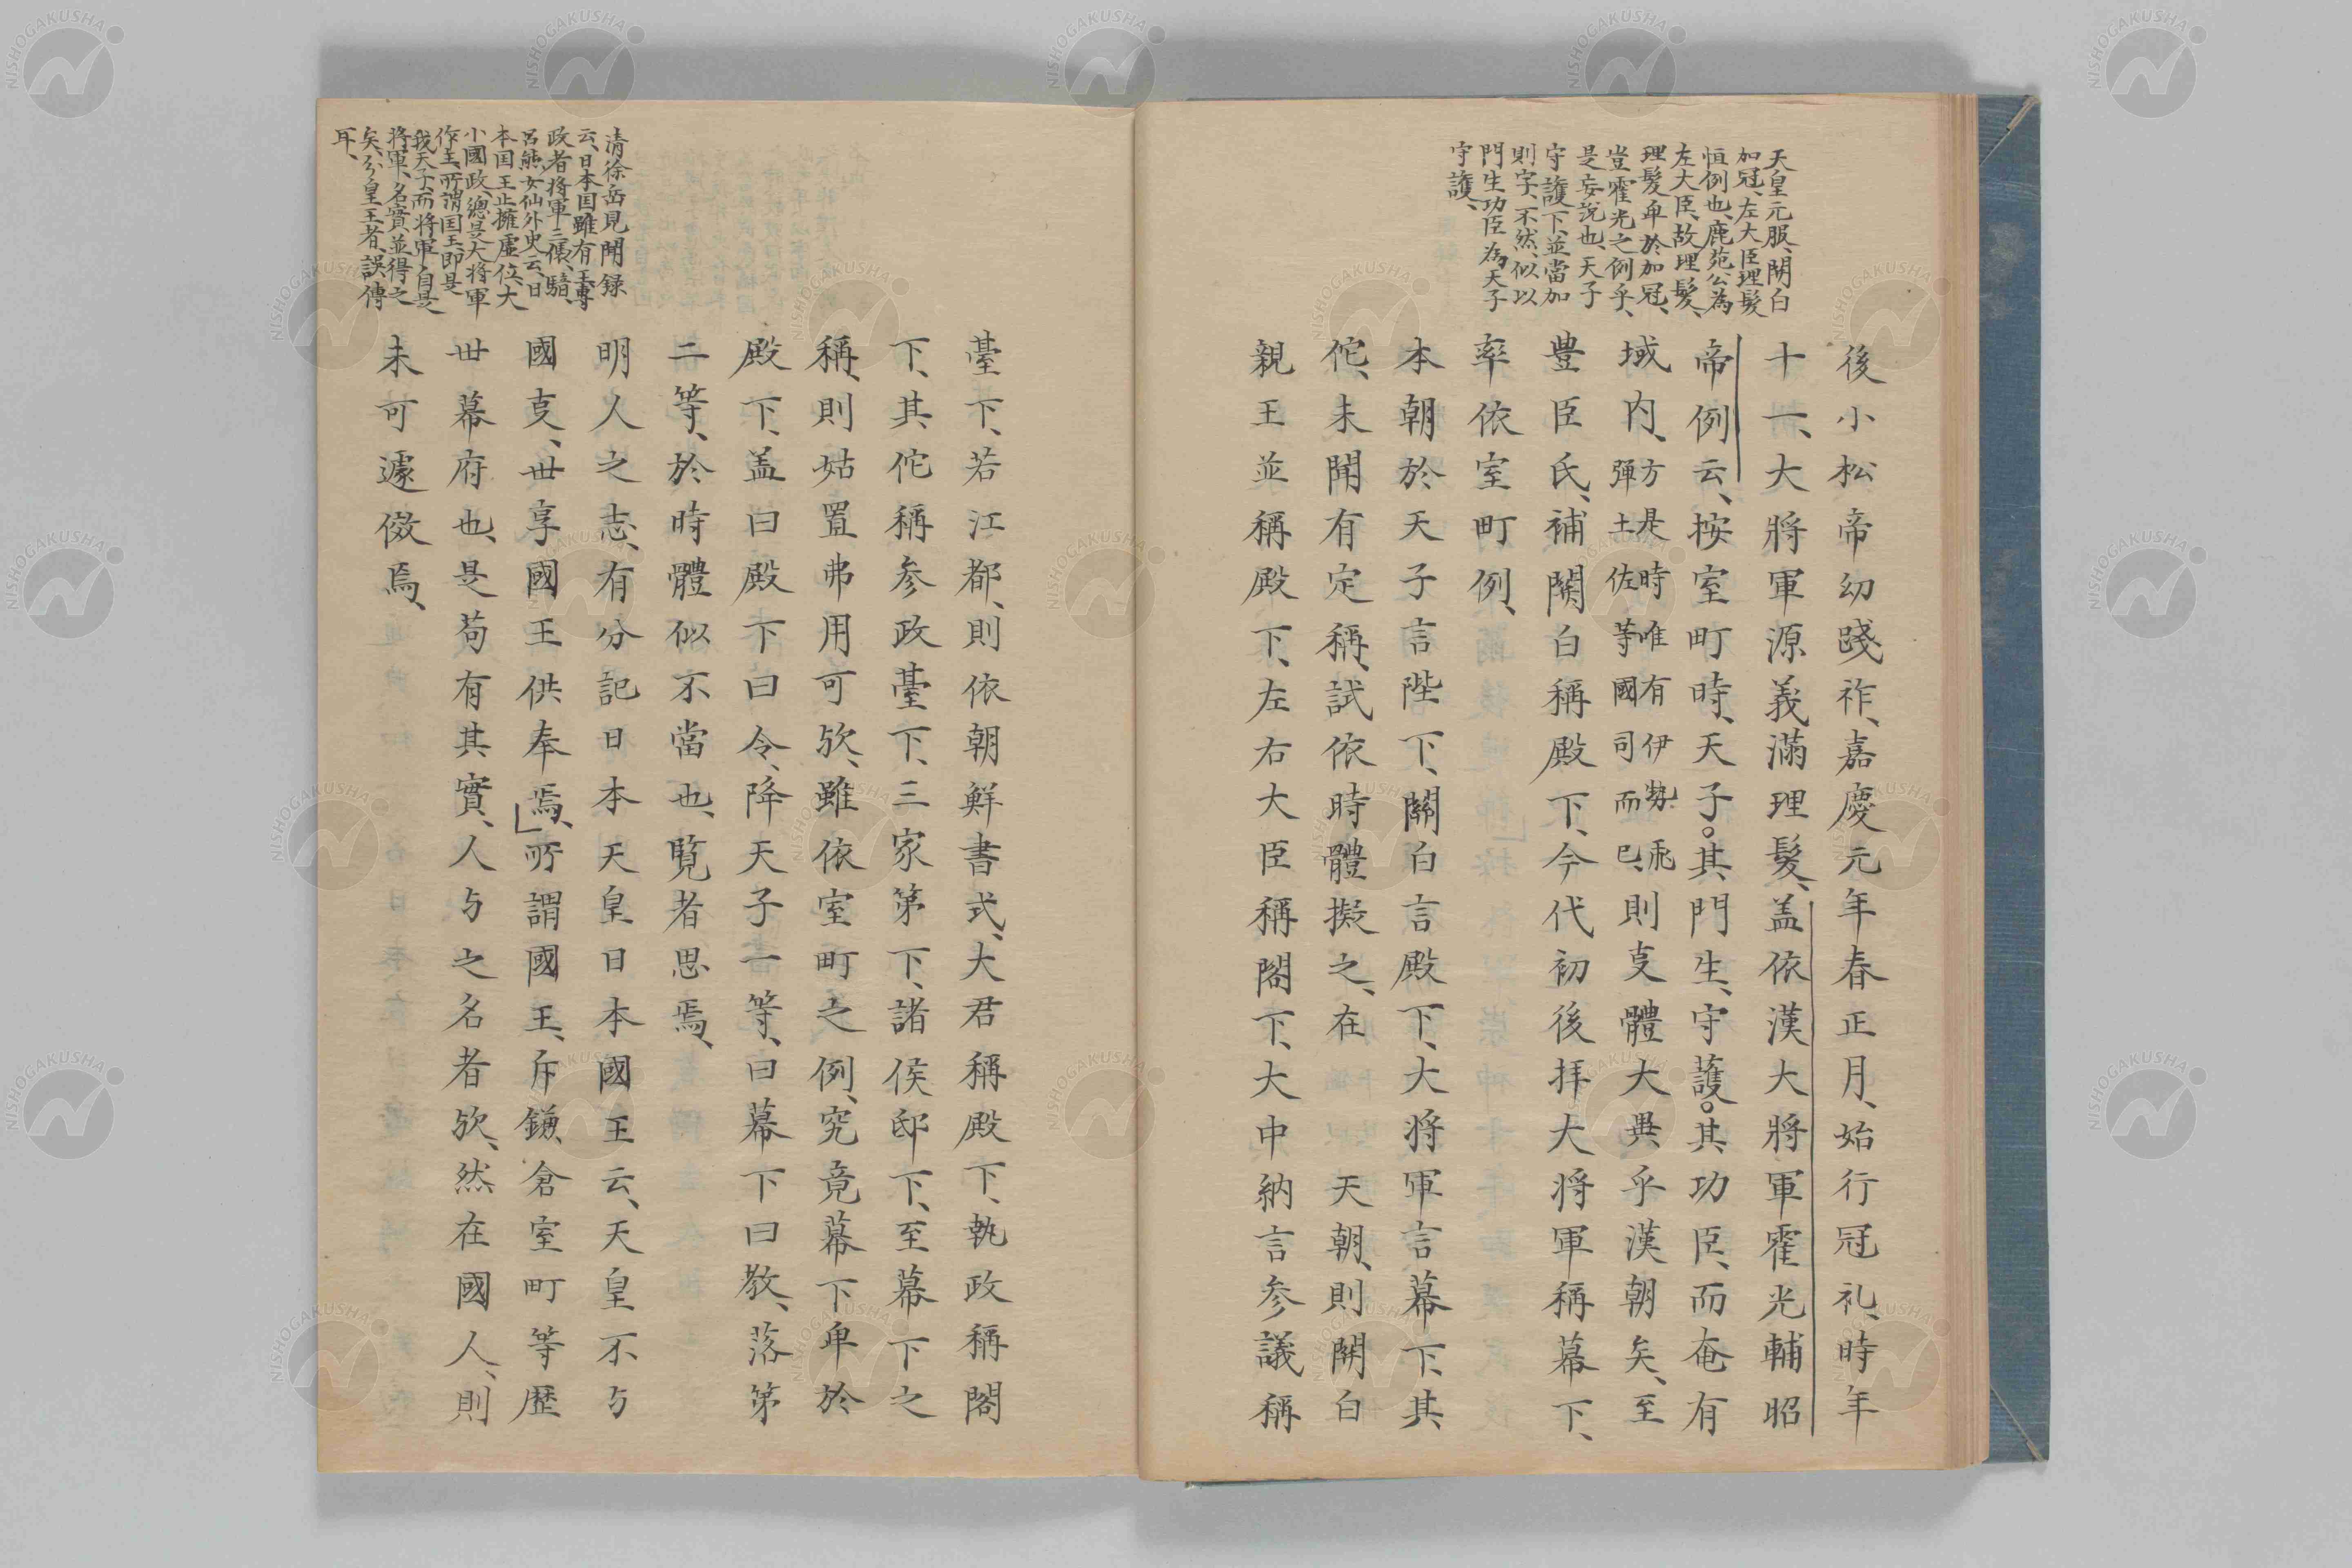 天皇元服、関白
加冠、左大臣理髪
恒例也、鹿苑公為
左大臣、故理髪、
理髪卑於加冠、
豈霍光之例乎、
是妄說也、天子
守護下、並當加
則字、不然、似以
門生功臣為天子
守護、
後小松帝幼踐祚、嘉慶元年春正月、始行冠礼、時年
十一、大將軍源義滿理髮、盖依漢大將軍霍光輔昭
帝例云、按室町時、天子。其門生、守護。其功臣、而奄有
域内、方是時唯有伊勢飛
彈土佐等國司而已、則叓體大異乎漢朝矣、至
豊臣氏、補関白稱殿下、今代初後拝大将軍稱幕下、
率依室町例、
本朝於天子言陛下、關白言殿下、大将軍言幕下、其
佗、未聞有定稱、試依時體擬之、在 天朝、則関白
親王並稱殿下、左右大臣稱閤下、大中納言参議稱
清徐岳見聞録
云、日本国雖有王、專
政者将軍
呂熊女仙外史云、日
本国王止擁虚位、大
小國政、總是大将軍
作主、所謂国王、即是
我天子、而将軍自是
将軍、名實並得之
矣、分皇王者、誤傳
耳、
臺下、若江都、則依朝鮮書式、大君稱殿下、執政稱閤
下、其佗稱参政臺下、三家第下、諸侯邸下、至幕下之
稱、則姑置弗用可欤、雖依室町之例、究竟幕下卑於
殿下、盖曰殿下曰令、降天子一等、曰幕下曰教、落第
二等、於時體似不當也、覧者思焉、
明人之志、有分記日本天皇日本國王云、天皇不与
國叓、世享國王供奉焉、所謂國王、斥鎌倉室町等歴
世幕府也、是苟有其實、人与之名者欤、然在國人、則
未可遽傚焉、